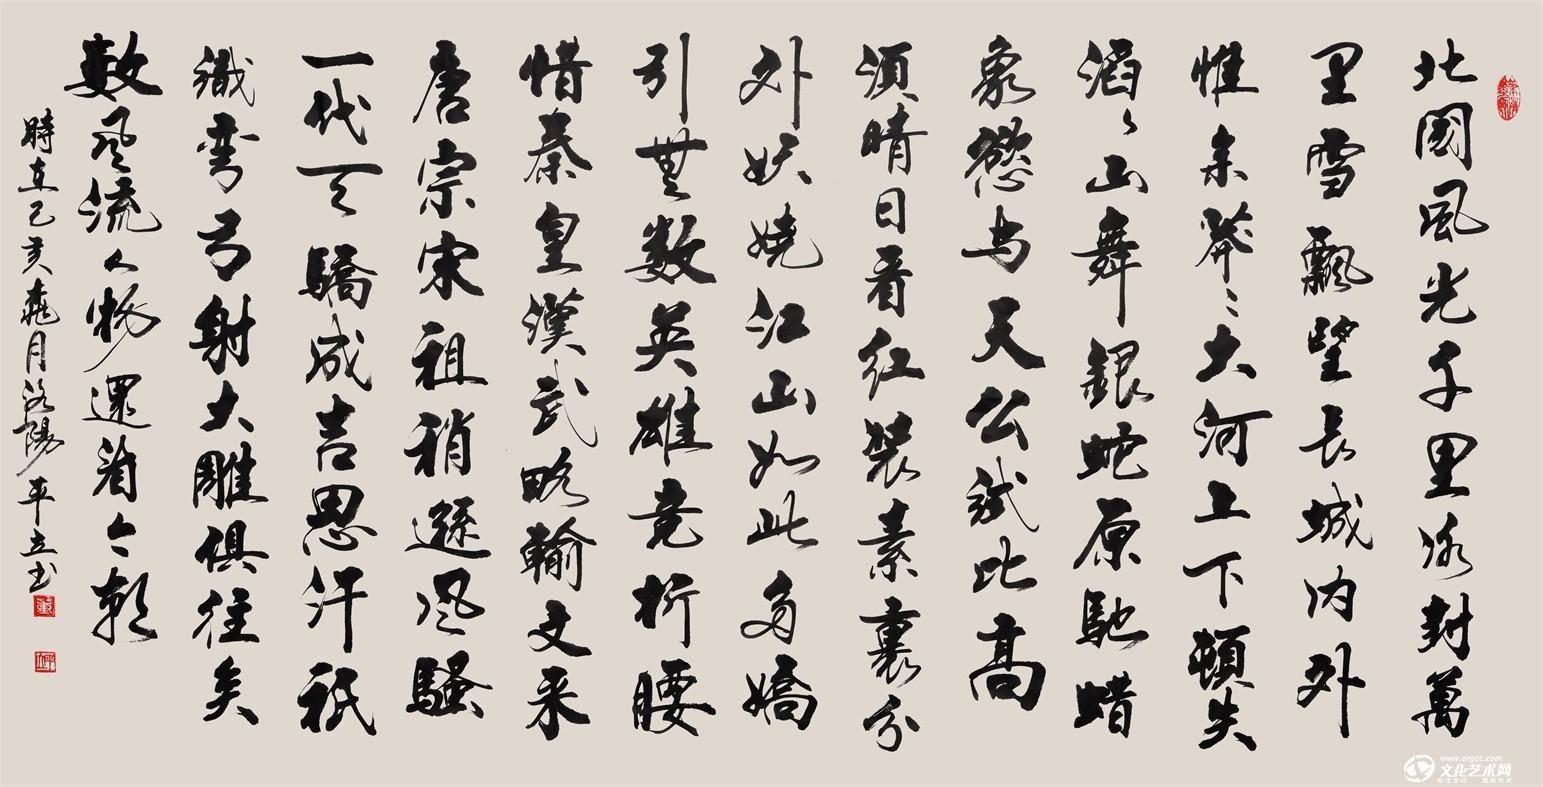 北國風光千里冰封萬
里雪飄望長城内外
惟余莽〻大河上下頓失
滔〻山舞銀蛇原馳蜡
象慾与天公試比高
須晴日看红装素裹分
外妖嬈江山如此多嬌
引無数英雄竞折腰
惜秦皇漢武略輸文采
唐宗宋祖稍遜风騷
一代天驕成吉思汗祇
識弯弓射大雕俱往矣
数风流人物還看今朝
時在己亥桃月洛陽平立书
www.orgcc.com
文化艺术网